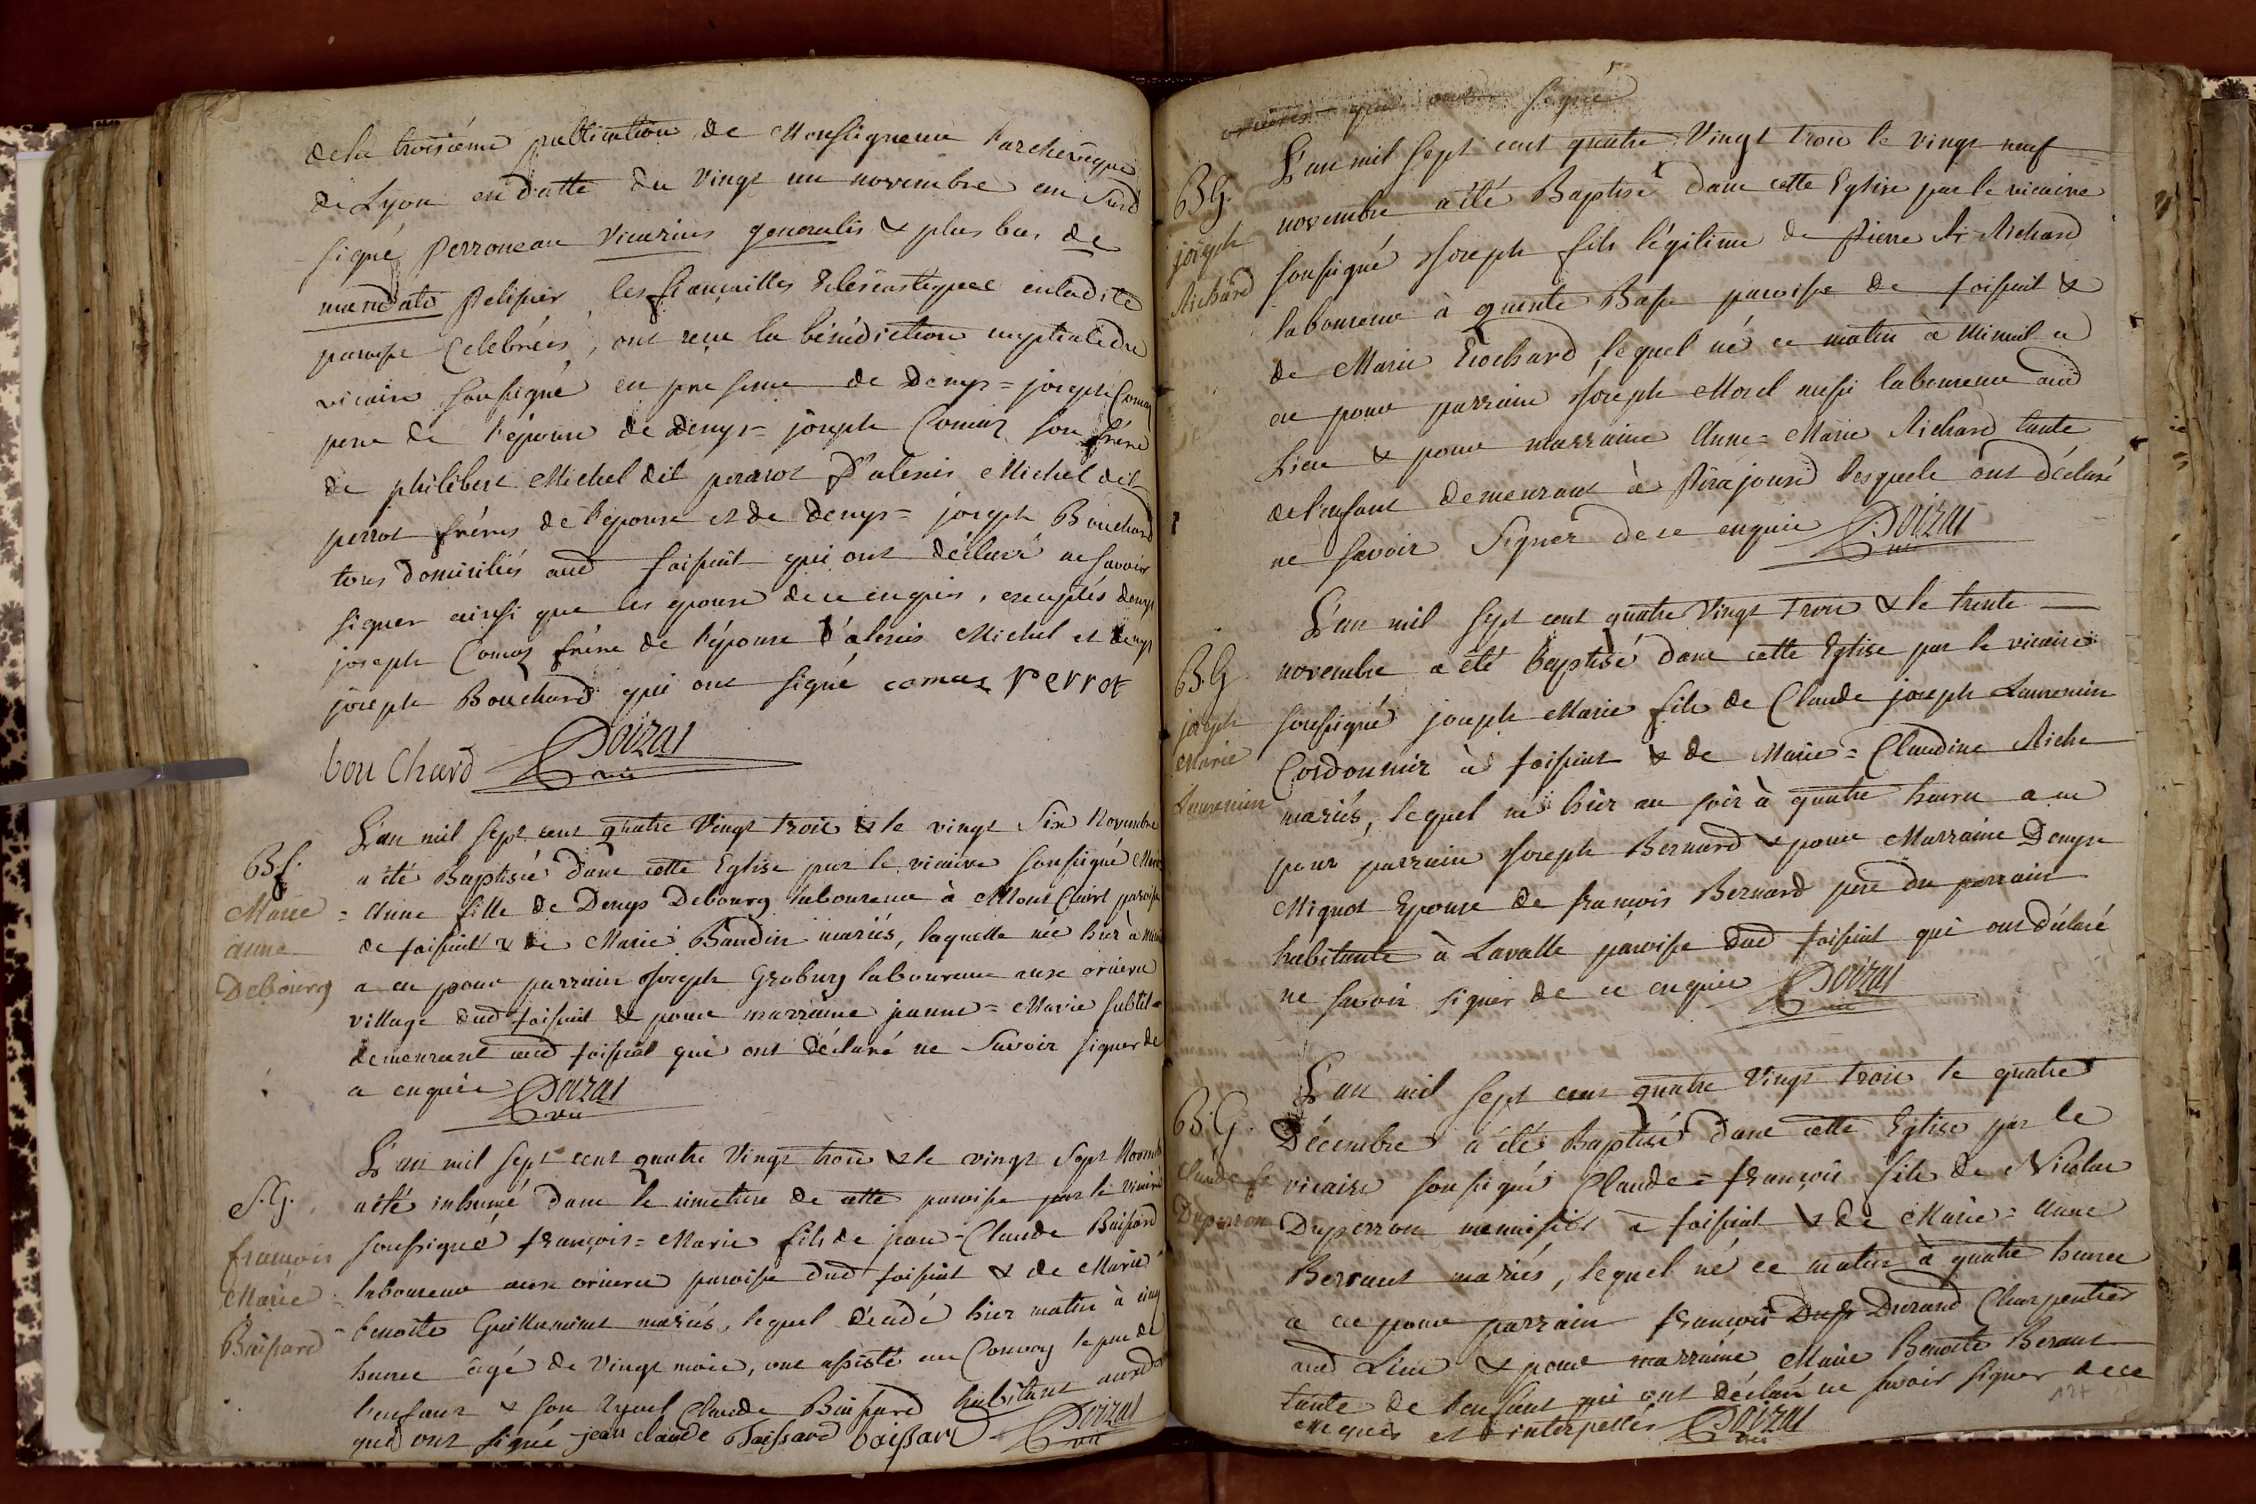 de la troisiéme publication de Monseigneur l'archevêque
de Lyon en datte du vingt un novembre an susd
signé Perroneau vicarius generalis & plus bas de
mandato pelissier les fiançailles Eclesiastiques en ladite
paroisse Celebrées, ont reçu la bénédiction nuptiale du
vicaire soussigné en presence de Denys = joseph Comoz
pere de l'épouse de Denys = joseph Comoz son frére
de philibert Michel dit perrot d'alexis Michel dit
perrot fréres de l'epoux et de Denys = joseph Bouchard
tous domiciliés aud foissiat qui ont déclaré ne savoir
signer ainsi que les epoux de ce enquis, exceptés denys
joseph Comoz frére de l'épouse d'alexis Michel et denys
joseph Bouchard qui ont signé comaz Perrot
bou Chard Doizat
vic
L'an mil sept cent quatre Vingt trois & le vingt Six Novembre
Bf.
Marie
anne
Debourg
a été Baptisée dans cette Eglise par le vicaire soussigné Marie
= Anne fille de Denys Debourg laboureur à Mont Clairt paroisse
de foissiat & de Marie Baudin mariés, laquelle née hier à
a eu pour parrain Joseph Grobuy laboureur aux
village dud foissiat & pour marraine jeanne = Marie
demeurant aud foissiat qui ont déclaré ne Savoir signer de
ce enquis Doizat
vic
L'an mil sept cent quatre Vingt trois & le vingt Sept Novembre
S.G.
françois
Marie
Baissard
a été inhumé dans le cimetiere de cette paroisse par le vicaire
soussigné françois = Marie fils de jean = Claude Baissard
laboureur aux paroisse dud foissiat & de Marie
= benoite Guilleminet mariés, lequel décedé hier matin à cinq
heures âgé de Vingt mois, ont assisté au Convoy le pere de
l'enfant & son Ayeul Claude Baissard habitant
qui ont signé jean claude Baissard baissard Doizat
vic
qui ont signé
L'an mil sept cent quatre Vingt trois le vingt neuf
BG.
joseph
Richard
novembre a été Baptisé dans cette Eglise par le vicaire
soussigné Joseph fils légitime de Pierre Richard
laboureur à quinte Basse paroisse de foissiat &
de Marie Trochard, lequel né ce matin à Minuit a
eu pour parrain Joseph Morel aussi laboureur aud
Lieu & pour marraine Anne = Marie Richard tante
de l'enfant demeurant à Pirajoux lesquels ont déclaré
ne savoir Signer de ce enquis Doizat
vic
L'an mil sept cent quatre Vingt trois & le trente
B.G
joseph
Marie
Laurencin
novembre a été baptisé dans cette Eglise par le vicaire
soussigné joseph Marie fils de Claude joseph Laurencin
Cordonnier à foissiat & de Marie = Claudine Riche
mariés, lequel né hier au soir à quatre heures a eu
pour parrain Joseph Bernard & pour Marraine Denyse
Mignot Epouse de françois Bernard pere du parrain
habitante à Lavalle paroisse dud foissiat qui ont déclaré
ne savoir signer de ce enquis Doizat
vic
L'an mil sept cent quatre Vingt trois le quatre
B.G.
Claude fs
Duperron
Décembre a été Baptisé dans cette Eglise par le
vicaire soussigné Claude = françois fils de Nicolas
Duperron menuisier à foissiat & de Marie = Anne
Berraut mariés, lequel né ce matin à quatre heures
a eu pour parrain françois Durand Charpentier
aud Lieu & pour marraine Marie Benoite Beraut
tante de l'enfant qui ont déclaré ne savoir signer de ce
enquis et interpellés Doizat
vic